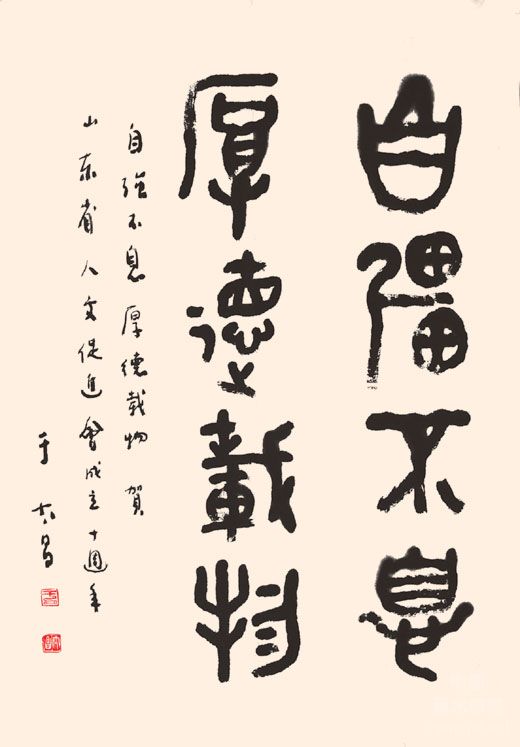 自彊不息
厚德載物
自強不息厚德載物賀
山東省人文促進會成立十週年
于